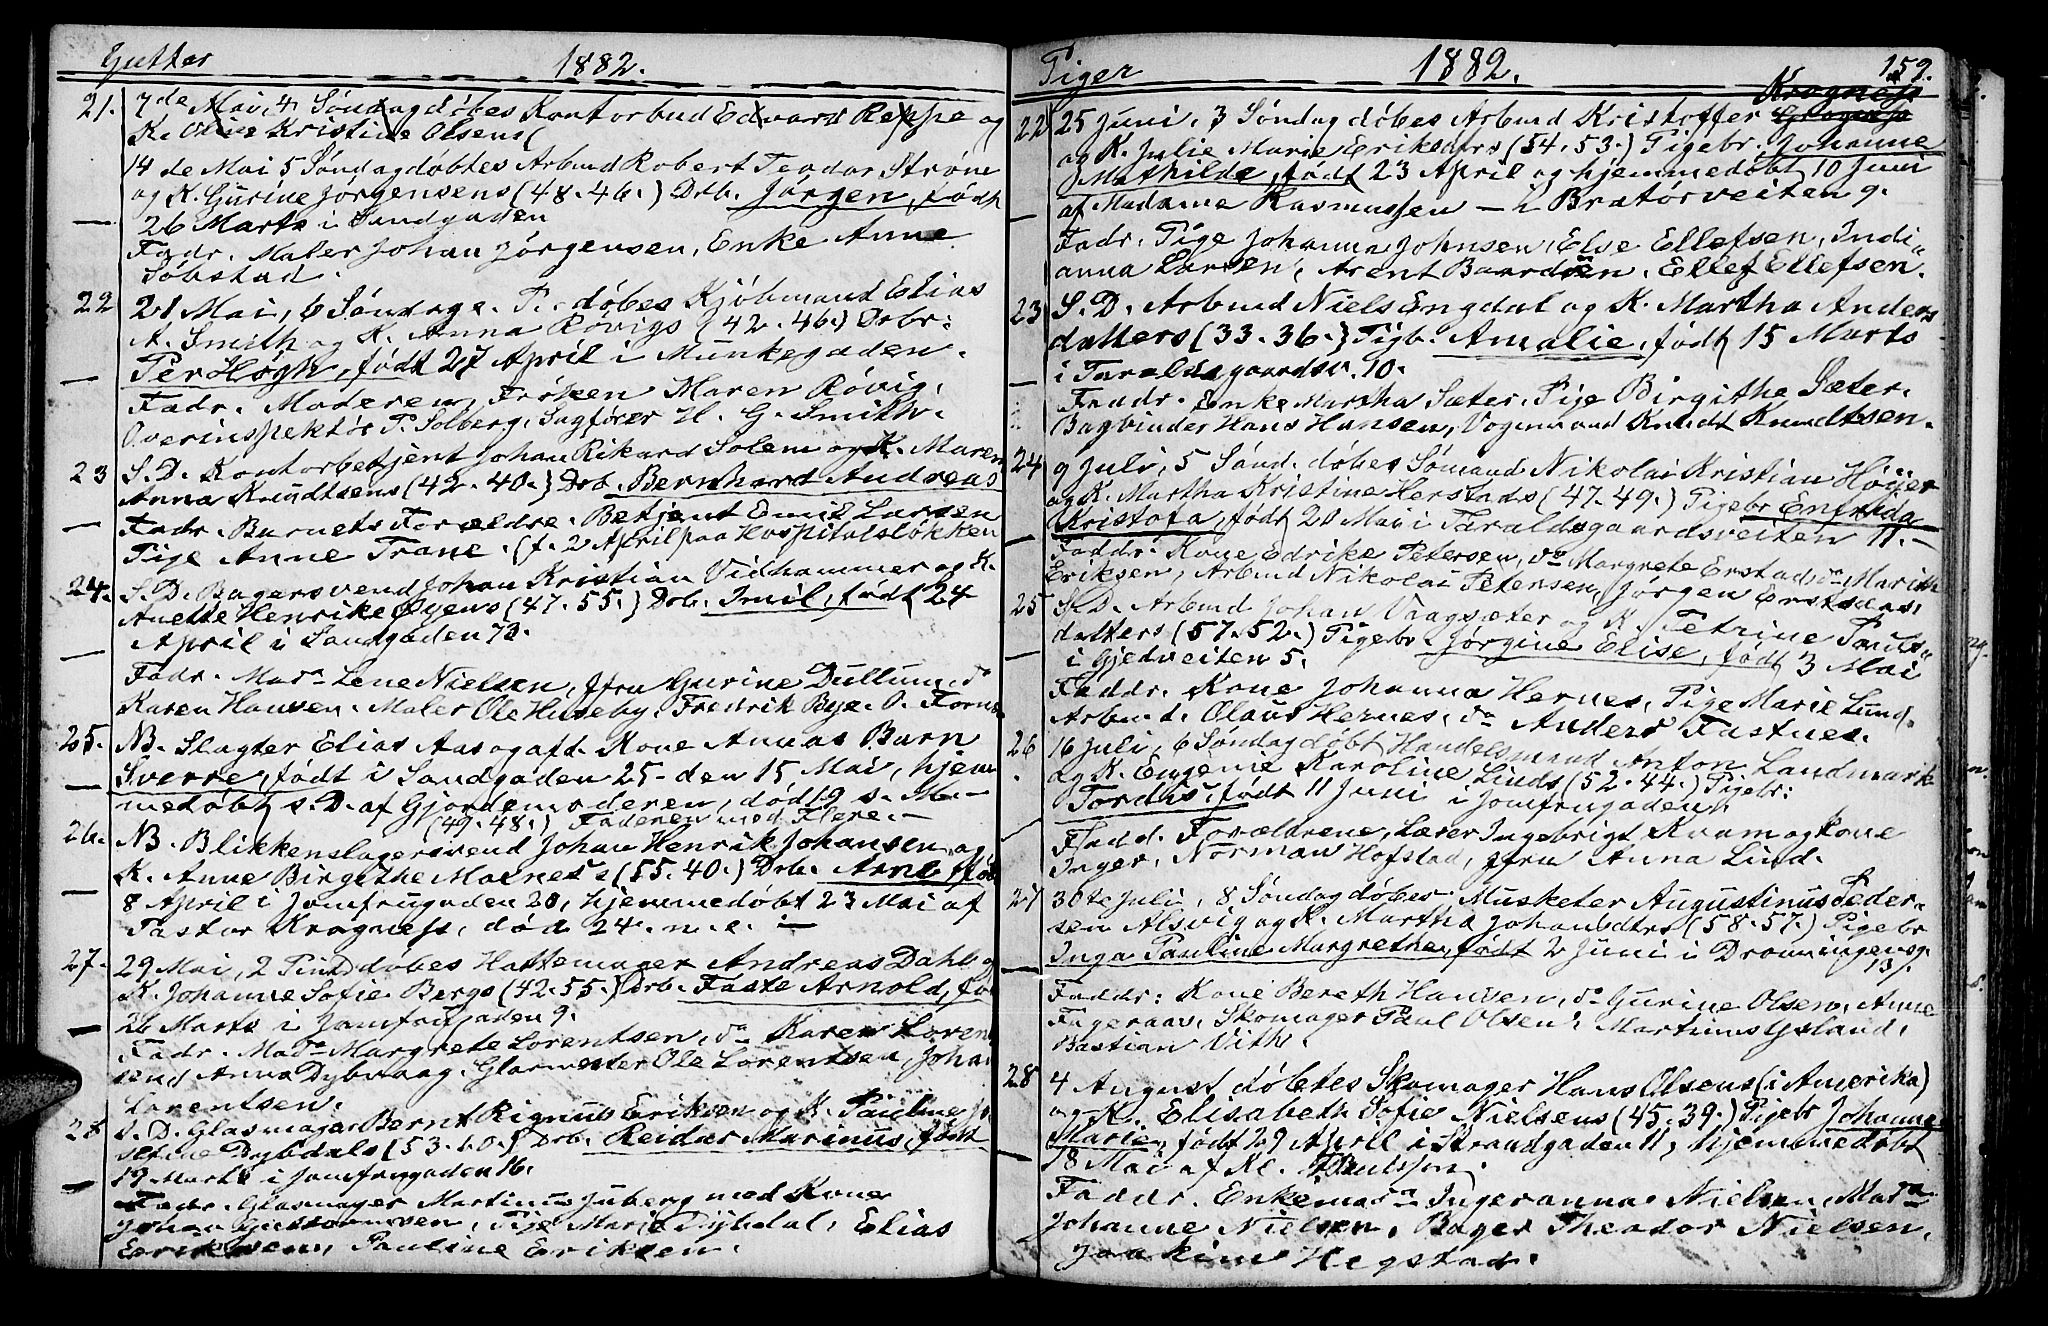 Gutter 1882.
21. 7de Mai, 4 Søndag døbes Kontorbud Edvard Reppe og
K. Olive Kristine Olsens (
14 de Mai 5 Søndag døbtes Arbmd Robert Teodor Strøm
og K. Gurine Jørgensens (48.46.) Drb. Jørgen, født
26 Marts i Sandgaden
Fadr. Maler Johan Jørgensen, Enke Anne
Søbstad.
22 21 Mai, 6 Søndag e. P. døbes Kjøbmand Elias
A. Smith og K. Anna Røvigs (42.46.) Drbr:
Per Høgh, født 27 April i Munkegaden.
Fadr. Moderen, Frøken Maren Røvig,
Overinspektør P. Solberg, Sagfører H. G. Smith.
23 S. D. Kontorbetjent Johan Rikard Solem og K. Maren
Anna Knudtsens (42.40.) Drb. Bernhard Andreas
Fadr. Barnets Forældre. Betjent Emil Larsen
Pige Anne Trane. (f. 2 April paa Hospitalsløkken
24. S. D. Bagersvend Johan Kristian Vidhammer og K.
Anette Henrike Øyens (47.55.) Drb. Imil, født 24
April i Sandgaden 73.
Fadr. Mada Lene Nielsen, Jfru Gurine Dullum, do
Karen Hansen. Maler Ole Huseby. Fredrik Bye. O. Forns
25. NB. Slagter Elias Aas og afd. Kone Annas Barn
Sverre, født i Sandgaden 25 den 15 Mai, hjem
medøbt s. D. af Gjordemoderen, død 19 s. M.
(49.48.) Faderen med Flere.
26. NB. Blikkenslagersvend Johan Henrik Johansen og
K. Anne Birgithe Moenes's (55.40.) Drb. Arne, fød
8 April i Jomfrugaden 20, hjemmedøbt 23 Mai af
Pastor Krogness, død 24. n. e.
27. 29 Mai, 2 Pintsd døbes Hattemager Andreas Dahl og
K. Johanne Sofie Bergs (42.55.) Drb. Faste Arnold, fød
26 Marts i Jomfrugaden 9.
Fadr. Mada Margrete Lorentsen, do Karen Loren
send Anna Dybvaag. Glarmester Ole Lorentsen, Johan
Lorentsen.
28 S. D. Glasmager Bernt Rignus Eriksen og K. Pauline Jo
sefine Dybdals (53.60.) Drb. Reidar Marinus, født
19 Marts i Jomfrugaden 16.
Fadr. Glasmager Martinus Juberg med Kone
Johan Gustavussen, Pige Marie Dybdal, Elias
Eriksen, Pauline Eriksen.
Piger 1882. 159.
Krogness
22 25 Juni, 3 Søndag døbes Arbmd Kristoffer
og K. Julie Marie Eriksdtrs (54.53.) Pigebr. Johanne
Mathilde, født 23 April og hjemmedøbt 10 Juni
af Madame Rasmussen — i Bratørveiten 9.
Fadr. Pige Johanna Johnsen, Else Ellefsen, Indi"
anna Larsen, Arent Baardsen. Ellef Ellefsen.
23 S. D. Arbmd Niels Engdal og K. Martha Anders
datters (33.36.) Pigb. Amalie, født 15 Marts
i Taraldsgaardsv. 10.
Faddr. Enke Martha Sæter, Pige Birgithe Sæter.
Bagbinder Hans Hansen, Vognmand Knudt Knudtsen.
24 9 Juli, 5 Sønd. døbes Sømand Nikolai Kristian Høyer
og K. Martha Kristine Herstads (47.49.) Pigebr Enfrida
Kristofa, født 20 Mai i Taraldsgaardsveiten 11.
Faddr. Kone Edrike Petersen, do Margrete Erstad, do Marith
Eriksen, Arbmd Nikolai Petersen, Jørgen
25 S. D. Arbmd Johan Vaagsæter og K. Petrine Pauls"
datters (57.52.) Pigebr. Jørgine Elise, født 3 Mai
i Gjedveiten 5.
Faddr. Kone Johanna Hernes, Pige Marie Lund.
Arbmd. Olaus Hernes, do Anders Fastnes.
26 16 Juli, 6 Søndag døbt Handelsmand Anton Landmark
og K. Eugenie Karoline Linds (52.44.) Pigebr:
Tordis, født 11 Juni i Jomfrugaden.
Fadd. Forældrene, Lærer Ingebrigt Kvam og kone
Inger, Norman Hofstad, Jfru Anna Lind.
27 30te Juli, 8 Søndag døbes Musketer Augustinus Peder-
sen Alsvig og K. Martha Johansdtrs (58.57.) Pigebr
Inga Pauline Margrethe, født 2 Juni i Dronningensg.
13.
Faddr: Kone Bereth Hansen, do Gurine Olsen, Anne
Fageraas, Skomager Paul Olsen, Martinus Ystand,
Bastian Vith.
28 4 August døbtes Skomager Hans Olsens (i Amerika)
og K. Elisabeth Sofie Nielsens (45.39.) Pigebr Johanne
Marie, født 29 April i Strandgaden 11, hjemmedøbt
18 Mai af Kl. Paulssøn.
Faddr. Enkemada Ingeranna Nielsen, Mada
Johanne Nielsen. Bager Theodor Nielsen,
Joakim Hegstad.